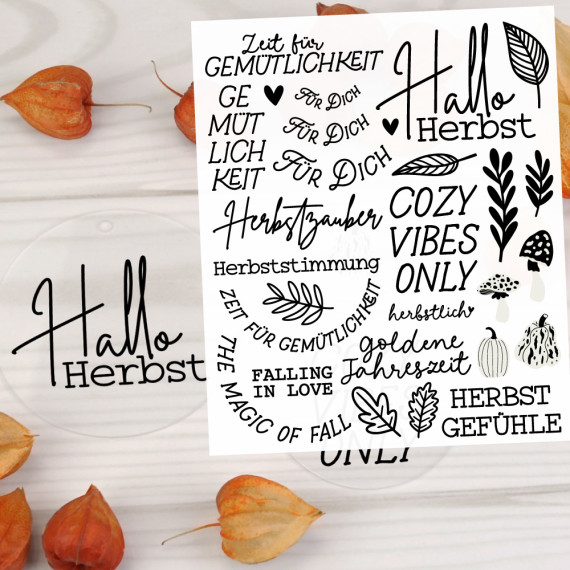 Zeit für
GEMÜTLICHKEIT
GE
MÜT
LICH
KEIT
FÜR DICH
FÜR DICH
FÜR DICH
Hallo
Herbst
Herbstzauber
Herbststimmung
COZY
VIBES
ONLY
ZEIT FÜR GEMÜTLICHKEIT
herbstlich
goldene
Jahreszeit
THE MAGIC OF FALL
FALLING
IN LOVE
HERBST
GEFÜHLE
Hallo
Herbst
VIBES
ONLY